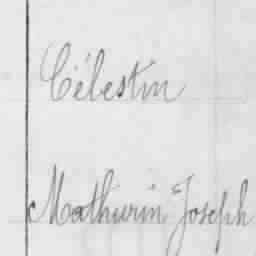 Célestin
Mathurin Joseph